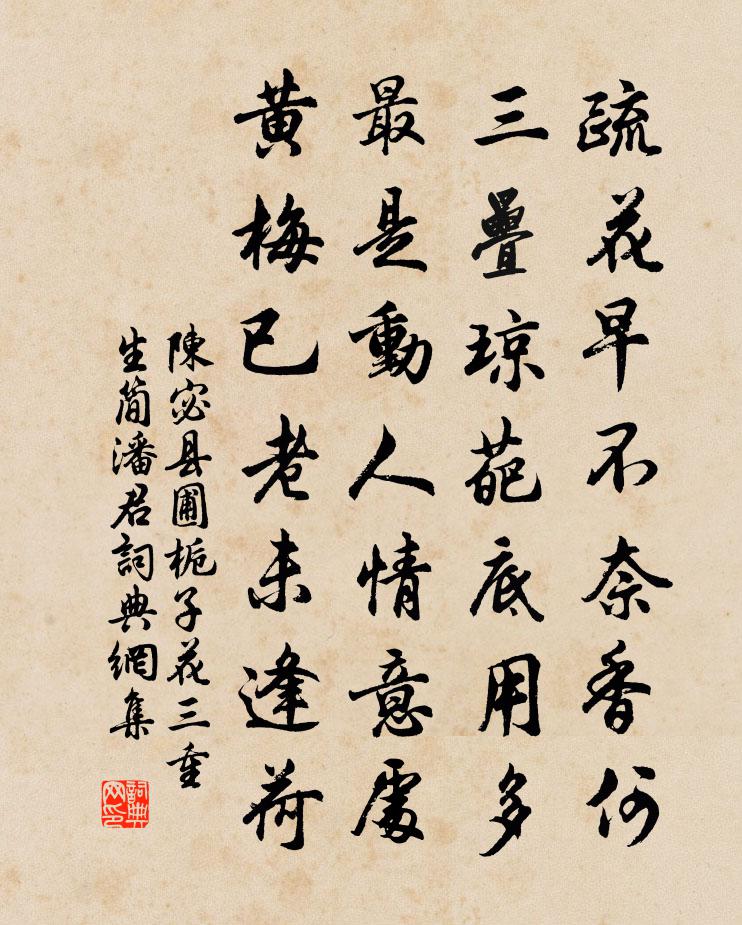 疏花早不奈香何
三疊琼葩底用多
最是動人情意處
黄梅已老未逢荷
陳宓县圃栀子花三重
生简潘君詞典網集
詞典网印